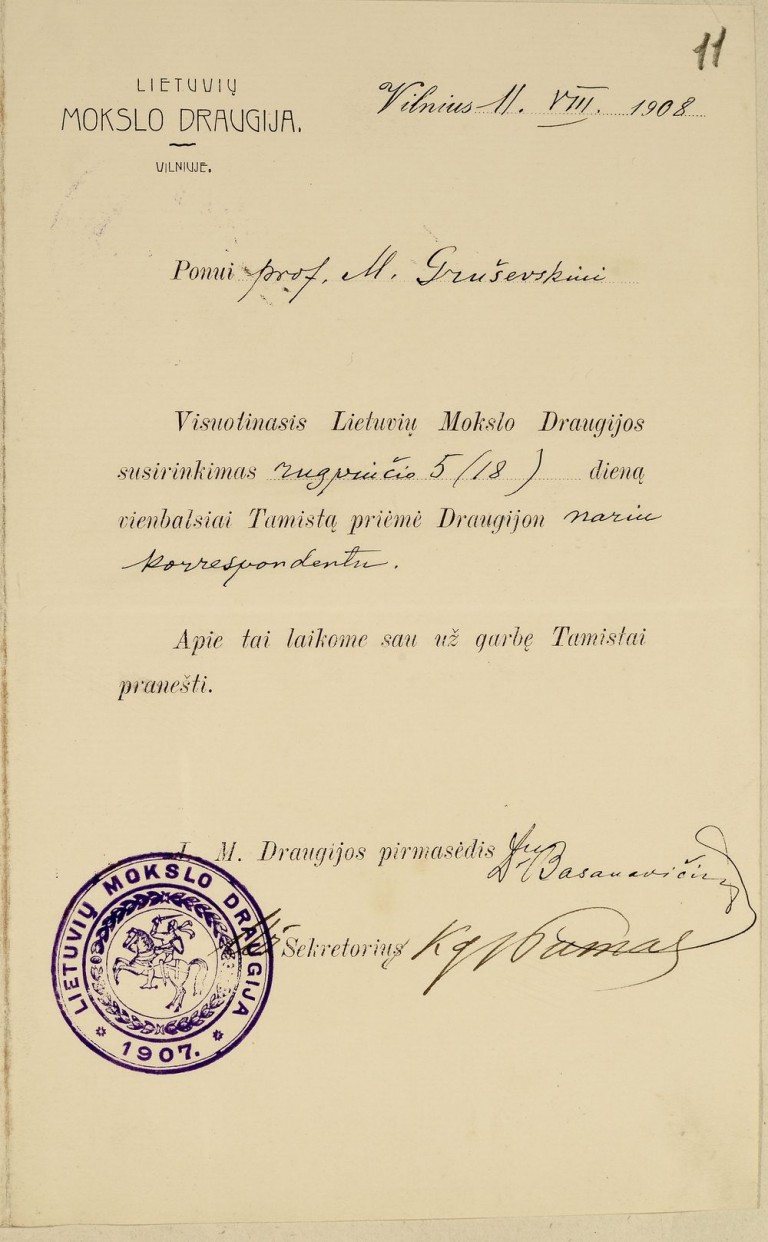 11
LIETUVIŲ
MOKSLO DRAUGIJA.
VILNIUJE.
Vilnius 11. VIII. 1908
Ponui prof. M. Gruševskiui
Visuotinasis Lietuvių Mokslo Draugijos
susirinkimas rugpiučio 5 (18) dieną
vienbalsiai Tamistą priėmė Draugijon nariu
korrespondentu.
Apie tai laikome sau už garbę Tamistai
pranešti.
L. M. Draugijos pirmasėdis Dr J Basanavičius
Sekretorius Kg J Tumas
LIETUVIŲ MOKSLO DRAUGIJA
* 1907. *